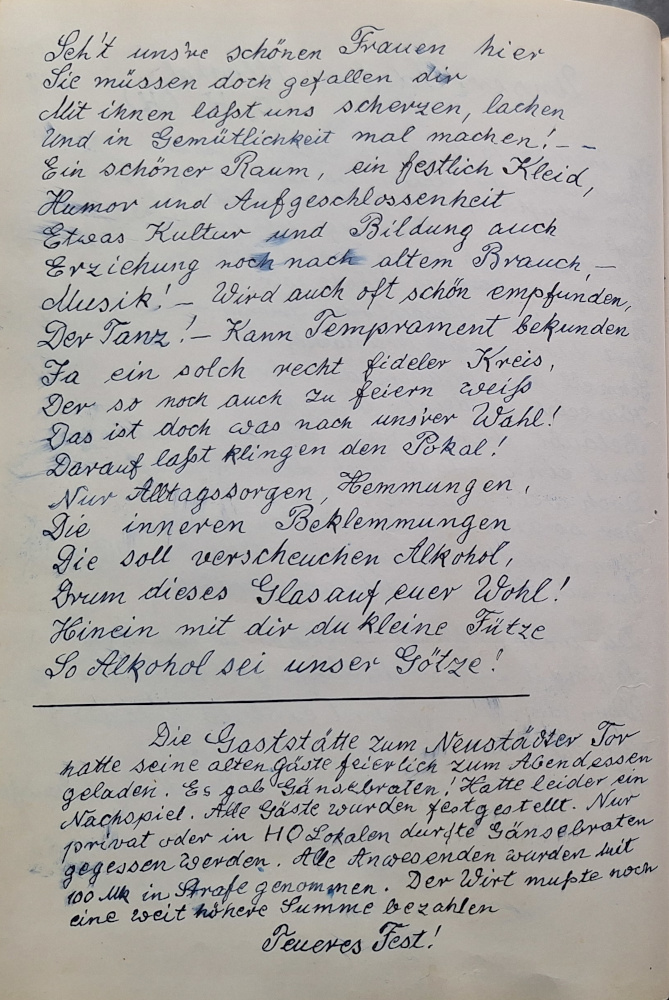 Seh't uns're schönen Frauen hier
Sie müssen doch gefallen dir
Mit ihnen laßt uns scherzen, lachen
Und in Gemütlichkeit mal machen! - -
Ein schöner Raum, ein festlich Kleid,
Humor und Aufgeschlossenheit
Etwas Kultur und Bildung auch
Erziehung noch nach altem Brauch, -
Musik! - Wird auch oft schön empfunden,
Der Tanz! - Kann Temprament bekunden
Ja ein solch recht fideler Kreis,
Der so noch auch zu feiern weiß
Das ist doch was nach uns'rer Wahl!
Darauf laßt klingen den Pokal!
Nur Alltagssorgen, Hemmungen,
Die inneren Beklemmungen
Die soll verscheuchen Alkohol,
Drum dieses Glas auf euer Wohl!
Hinein mit dir du kleine Fütze
So Alkohol sei unser Götze!
Die Gaststätte zum Neustädter Tor
hatte seine alten Gäste feierlich zum Abendessen
geladen. Es gab Gänsebraten! Hatte leider ein
Nachspiel. Alle Gäste wurden festgestellt. Nur
privat oder in HO Lokalen durfte Gänsebraten
gegessen werden. Alle Anwesenden wurden mit
100 Mk in Strafe genommen. Der Wirt mußte noch
eine weit höhere Summe bezahlen
Teueres Fest!